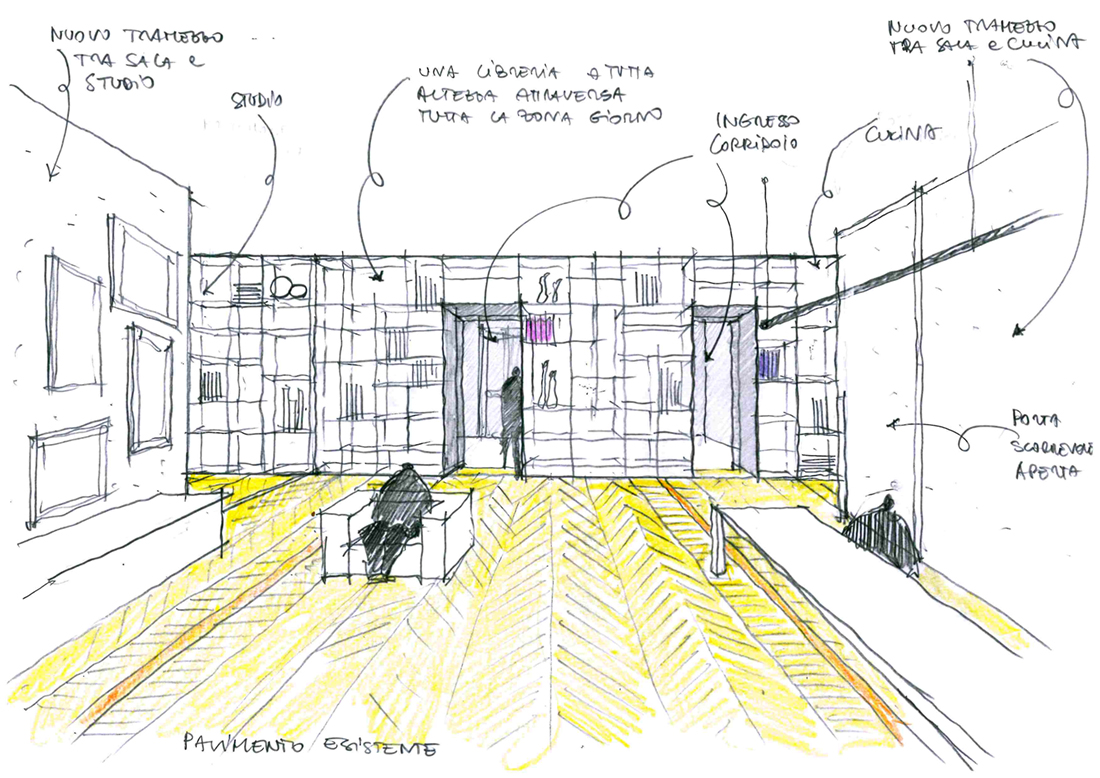 NUOVO TRAMEZZO
TRA SALA e
STUDIO
STUDIO
UNA LIBRERIA A TUTTA
ALTEZZA ATTRAVERSA
TUTTA LA ZONA GIORNO
INGRESSO
CORRIDOIO
CUCINA
NUOVO TRAMEZZO
TRA SALA e CUCINA
PORTA
SCORREVOLE
APERTA
PAVIMENTO ESISTENTE